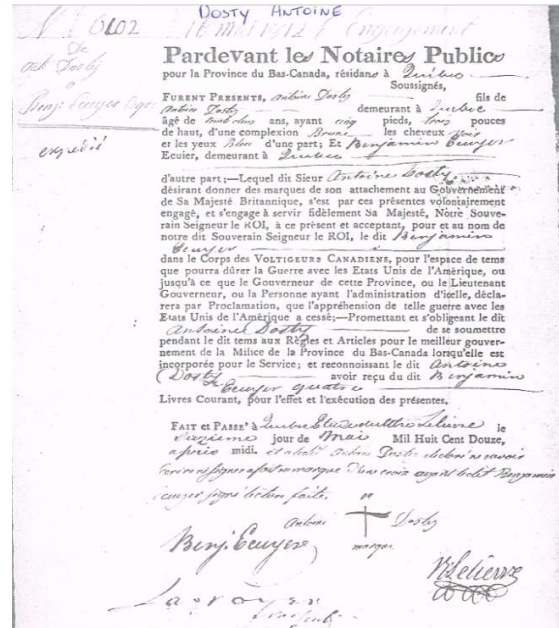 DOSTY ANTOINE
N° 0102 16 Mai 1812 Engagement
De
Ant. Dosty
a
Benj. Ecuyer Esqr
expedié
Pardevant les Notaires Publics
pour la Province du Bas-Canada, résidans à Quebec
Soussignés,
FURENT PRESENTS, Antoine Dosty fils de
Antoine Dosty demeurant à Quebec
âgé de ans, ayant cinq pieds, trois pouces
de haut, d'une complexion Brune les cheveux Noir
et les yeux Bleu d'une part; Et Benjamin Ecuyer
Ecuier, demeurant à Quebec
d'autre part;—Lequel dit Sieur Antoine Dosty
désirant donner des marques de son attachement au Gouvernement
de Sa Majesté Britannique, s'est par ces présentes volontairement
engagé, et s'engage à servir fidèlement Sa Majesté, Nôtre Souve-
rain Seigneur le ROI, à ce présent et acceptant, pour et au nom de
notre dit Souverain Seigneur le ROI, le dit Benjamin
Ecuyer
dans le Corps des VOLTIGEURS CANADIENS, pour l'espace de tems
que pourra dûrer la Guerre avec les Etats Unis de l'Amérique, ou
jusqu'à ce que le Gouverneur de cette Province, ou le Lieutenant
Gouverneur, ou la Personne ayant l'administration d'icelle, décla-
rera par Proclamation, que l'appréhension de telle guerre avec les
Etats Unis de l'Amérique a cessé;—Promettant et s'obligeant le dit
Antoine Dosty de se soumettre
pendant le dit tems aux Règles et Articles pour le meilleur gouver-
nement de la Milice de la Province du Bas-Canada lorsqu'elle est
incorporée pour le Service; et reconnoissant le dit Antoine
Dosty avoir reçu du dit Benjamin
Ecuyer quatre
Livres Courant, pour l'effet et l'exécution des présentes.
FAIT et PASSE' à Quebec Etude le
Seizieme jour de Mai Mil Huit Cent Douze,
après midi. et a ledit Antoine Dosty declaré ne savoir
ecrire ni signer a fait sa marque d'une croix ledit Benjamin
Ecuyer signé lecture faite.
Antoine Dosty
marque
Benj. Ecuyer